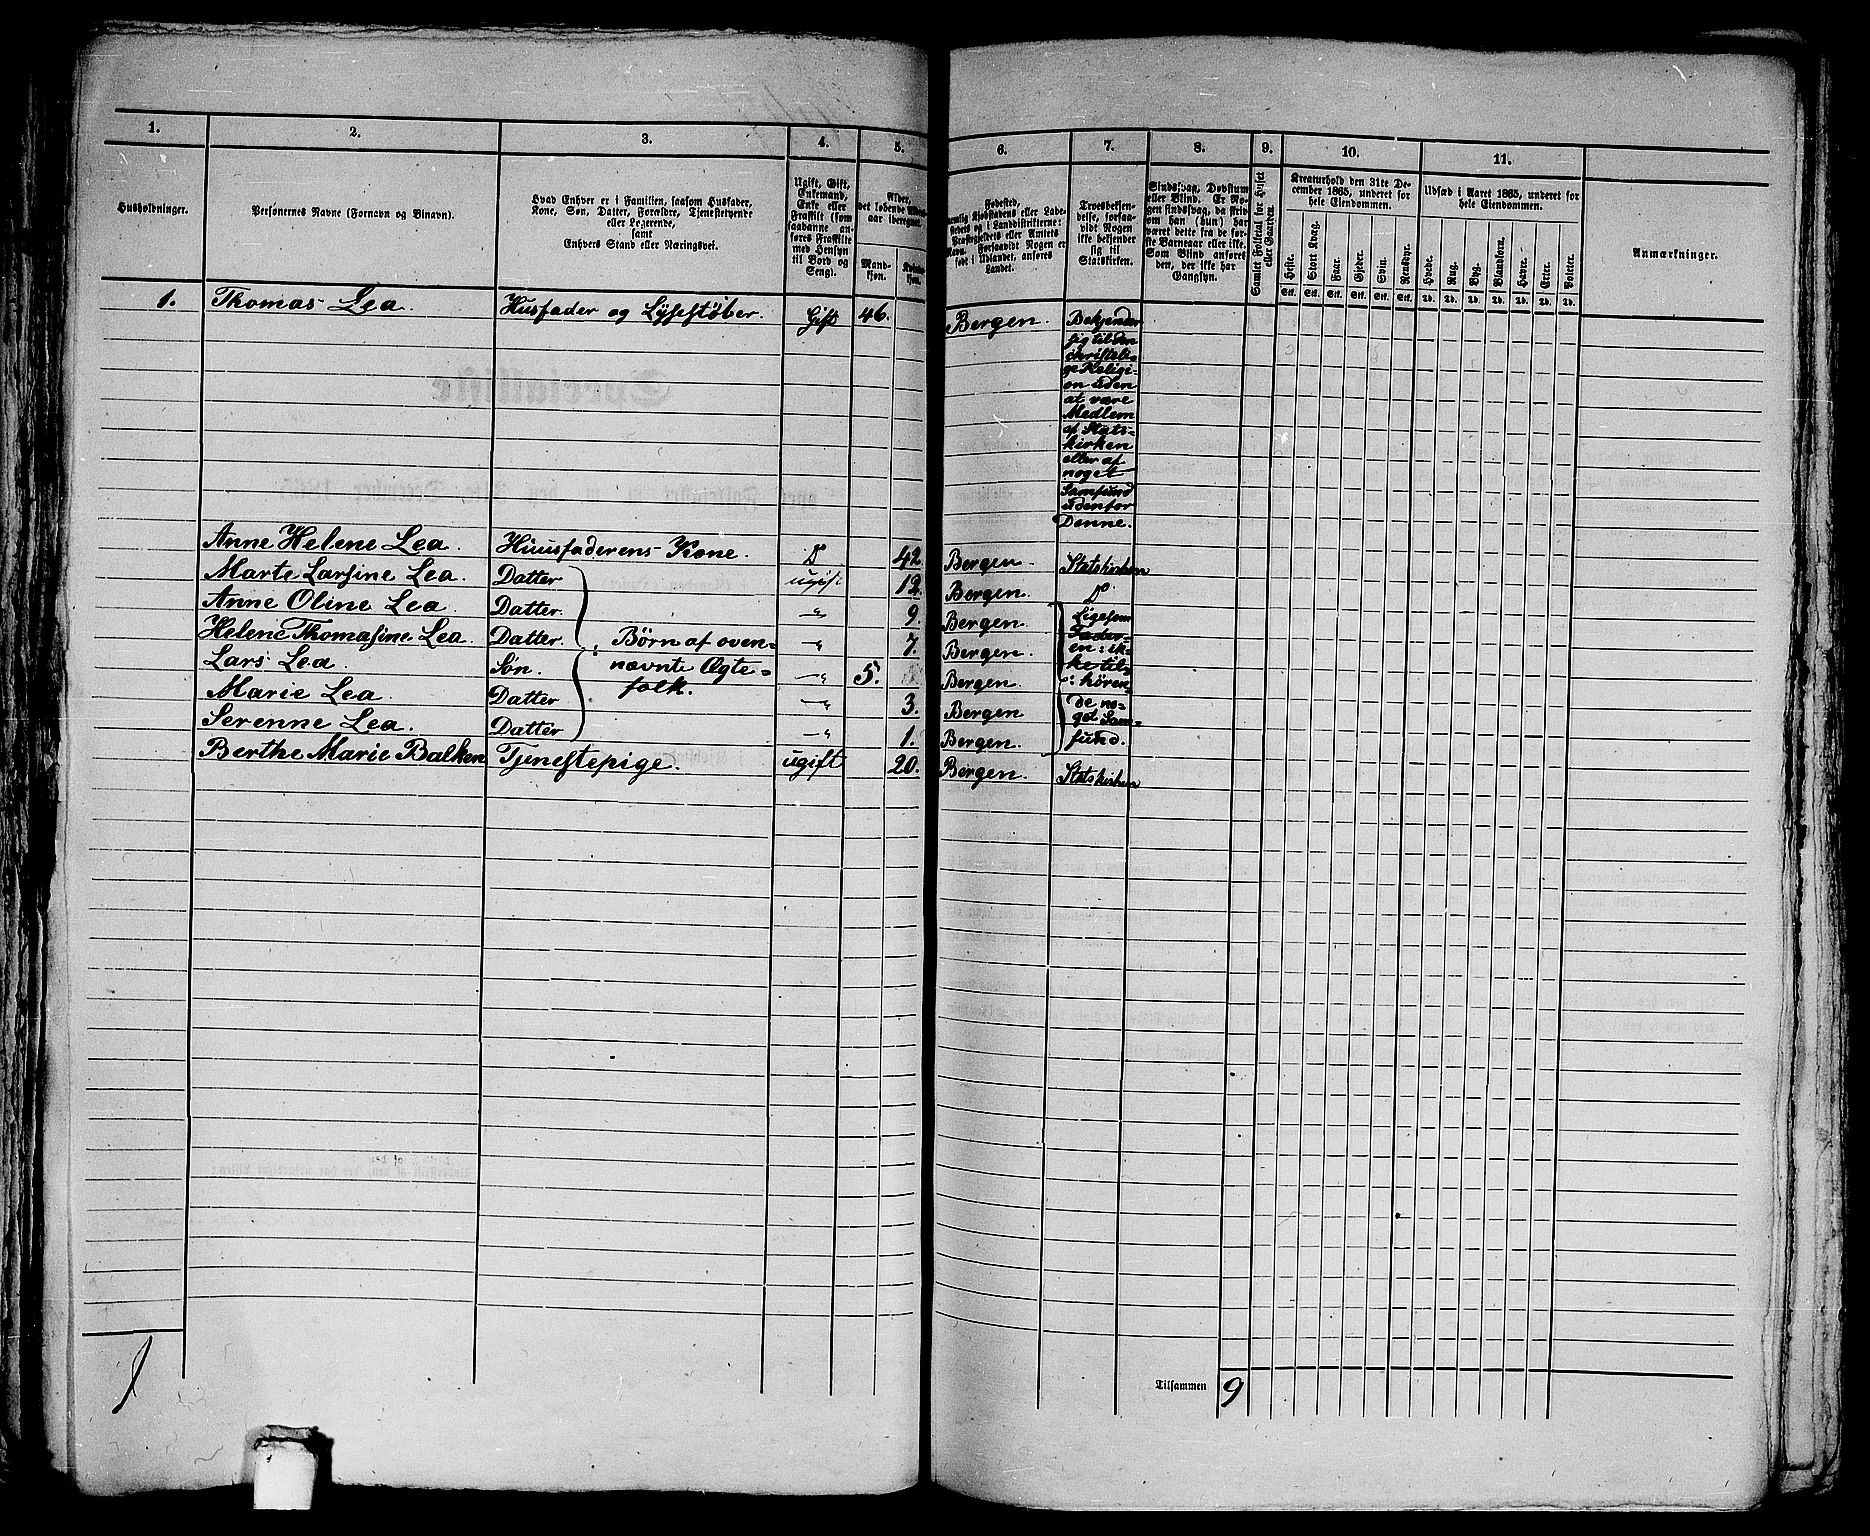 1. 2. 3. 4. 5. 6. 7. 8. 9. 10. 11.
Husholdninger.
Personernes Navne (Fornavn og Binavn).
Hvad Enhver er i Familien, saasom Husfader,
Kone, Søn, Datter, Forældre, Tjenestetyende
eller Logerende,
samt
Enhvers Stand eller Næringsvei.
Ugift, Gift,
Enkemand,
Enke eller
Fraskilt (som
saadanne an-
føres Fraskilte
med Hensyn
til Bord og
Seng).
Alder,
det løbende
aar iberegnet.
Mand-
kjøn.
Kvinde-
kjøn.
Fødested,
nemlig Kjøbstadens eller Lade-
stedets og i Landdistrikterne:
Præstegjeldets eller Amtets
Navn. Forsaavidt Nogen er
født i Udlandet, anføres
Landet.
Troesbekjen-
delse, forsaa-
vidt Nogen
ikke bekjender
sig til
Statskirken.
Sindssvag, Døvstum
eller Blind. Er No-
gen sindssvag, da skriv
om han (hun) har
været dette fra de før-
ste Barneaar eller ikke.
Som Blind anføres
den, der ikke har
Gangsyn.
Samlet Folketal for Huset
eller Gaarden.
Kreaturhold den 31te De-
cember 1865, underet for
hele Eiendommen.
Heste. Stort Kvæg. Faar. Gjeder. Svin. Rensdyr.
Stk. Stk. Stk. Stk. Stk. Stk.
Udsæd i Aaret 1865, underet for
hele Eiendommen.
Hvede. Rug. Byg. Blandkorn. Havre. Erter. Poteter.
Td. Td. Td. Td. Td. Td. Td.
Anmærkninger.
1. Thomas Lea Husfader og Lysestøber. Gift 46. Bergen. Bekjender
sig til den
christeli-
ge Religi-
on uden
at være
Medlem
af Stats-
kirken
eller af
noget
Samfund
udenfor
Denne.
Anne Helene Lea. Huusfaderens Kone. D 42. Bergen. Statskirken
Marte Larsine Lea. Datter ugift 12. Bergen. D
Anne Oline Lea. Datter. " 9. Bergen. Ligesom
Fader-
Helene Thomasine Lea. Datter. Børn af oven- " 7. Bergen. en: ik-
ke til-
Lars Lea. Søn. nævnte Ægte- " 5. Bergen. : høren-
Marie Lea. Datter folk. " 3. Bergen de no-
get Sam-
Serenne Lea. Datter " 1. Bergen. fund.
Berthe Marie Balken Tjenestepige. ugift 20. Bergen. Statskirken
1
Tilsammen 9